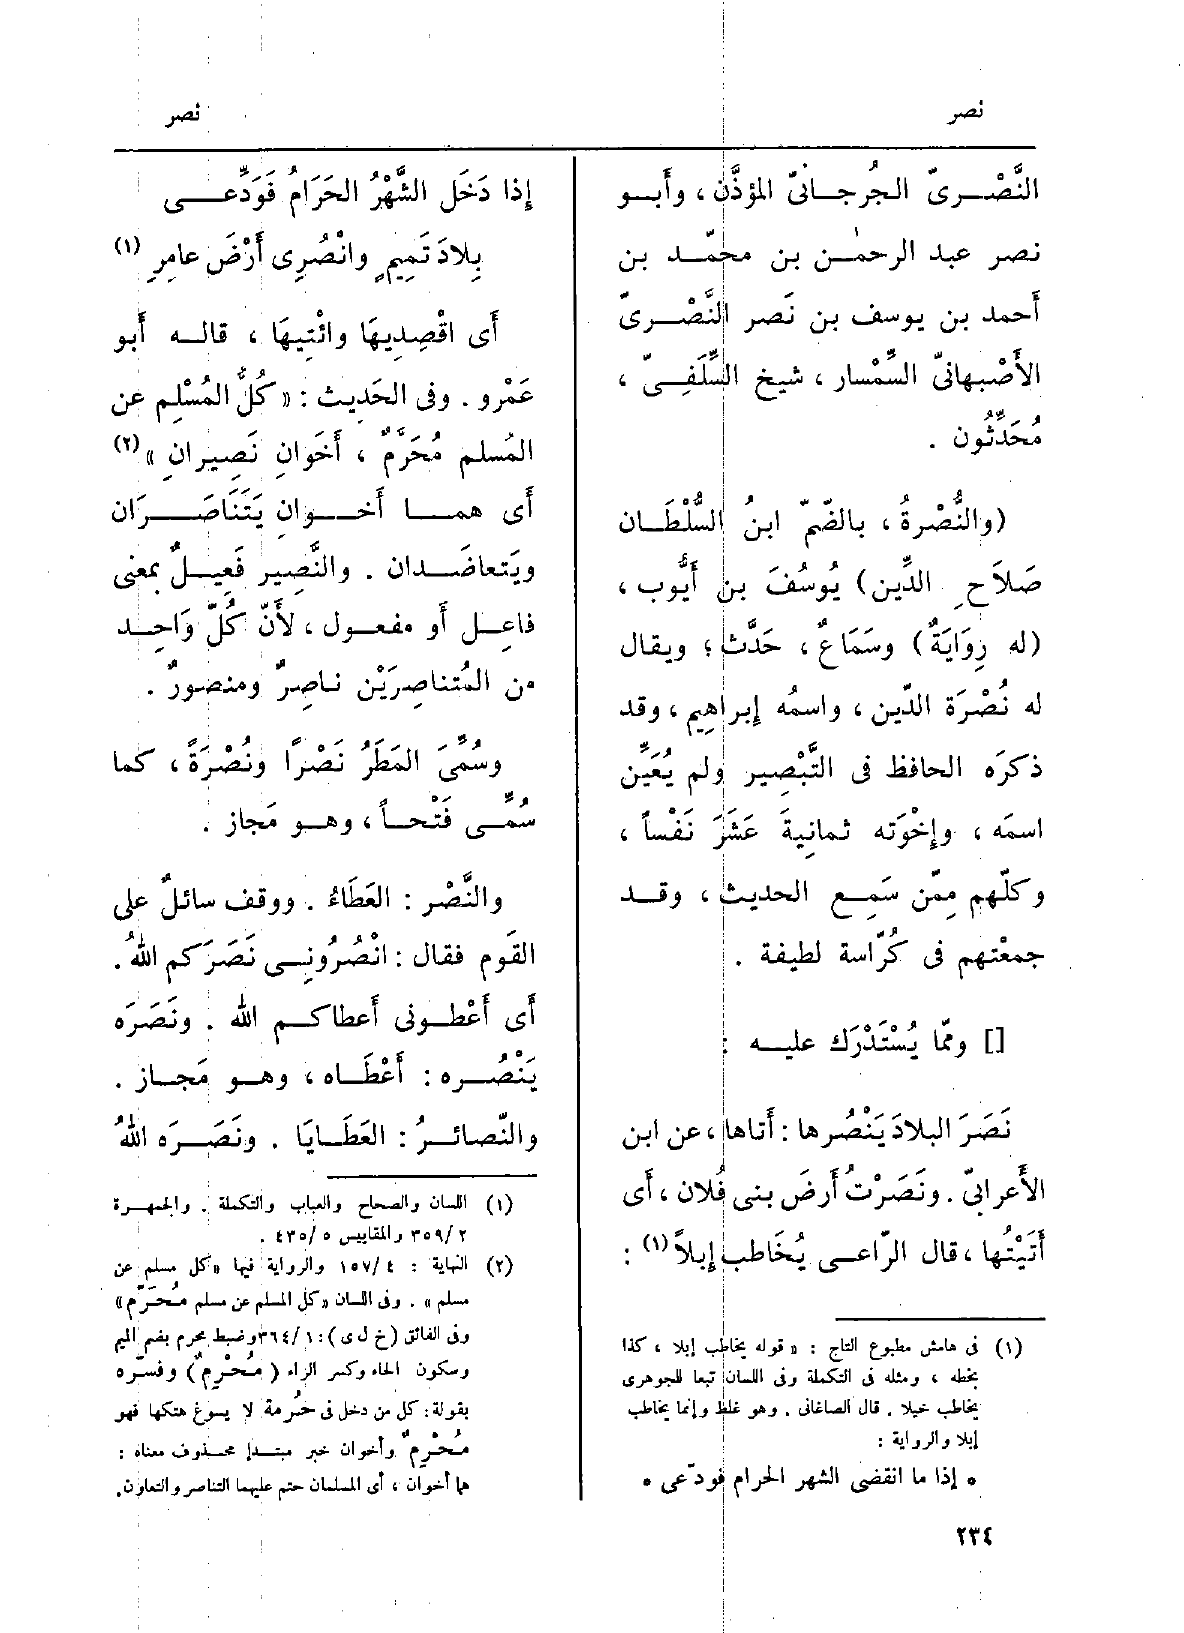 نصر
نصر
النَّصْرىّ الجُرجانىّ المؤذّن، وأبو
نصر عبد الرحمٰن بن محمّد بن
أحمد بن يوسف بن نَصر النَّصْرىّ
الأَصْبهانىّ السِّمْسار، شيخ السِّلَفىّ،
مُحَدِّثُون .
(والنُّصْرةُ، بالضّمّ ابنُ السُّلْطَان
صَلاَحِ الدِّين) يُوسُفَ بن أَيُّوب،
(له رِوَايَةٌ) وسَمَاعٌ، حَدَّث؛ ويقال
له نُصْرَة الدّين، واسمُه إبراهِيم، وقد
ذكرَه الحافظ فى التَّبْصير ولم يُعَيِّن
اسمَه، وإخْوَته ثمانيةَ عَشَرَ نَفْساً،
وكلّهم مِمّن سَمِع الحديث، وقد
جمعْتهم فى كُرّاسة لطيفة .
[] وممّا يُسْتَدْرَك عليه :
نَصَرَ البلادَ يَنْصُرها : أَتاها، عن ابن
الأَعرابىّ . ونَصَرْتُ أَرضَ بنى فُلان، أَى
أَتَيْتُها، قال الرّاعى يُخَاطب إبلاً (١) :
(١) فى هامش مطبوع التاج : « قوله يخاطب إبلا ، كذا
بخطه ، ومثله فى التكملة وفى اللسان تبعا للجوهرى
يخاطب خيلا . قال الصاغانى . وهو غلط وإنما يخاطب
إبلا والرواية :
• إذا ما انقضى الشهر الحرام فودّعى •
إذا دَخَل الشَّهْرُ الحَرَامُ فَوَدِّعى
بِلادَ تَمِيمٍ وانْصُرِى أَرْضَ عامِرِ (١)
أَى اقْصِدِيهَا وائْتِيهَا ، قاله أَبو
عَمْرو . وفى الحَدِيث : « كلُّ المُسْلِم عن
المُسلم مُحَرَّمٌ ، أَخَوانِ نَصِيرانِ » (٢)
أَى هما أَخوانِ يَتَنَاصَرَان
ويَتعاضَدان . والنَّصِير فَعِيلٌ بمعنى
فاعِل أَو مفعول، لأَنّ كُلّ وَاحِد
من المُتناصِرَيْن ناصِرٌ ومنصورٌ .
وسُمِّىَ المَطَرُ نَصْرًا ونُصْرَةً، كما
سُمِّى فَتْحاً، وهو مَجاز .
والنَّصْر : العَطَاءُ . ووقف سائلٌ على
القَوم فقال : انْصُرُونِى نَصَرَكم اللهُ .
أَى أَعْطونى أَعطاكم الله . ونَصَرَه
يَنْصُره : أَعْطَاه، وهو مَجاز .
والنّصائرُ : العَطَايَا . ونَصَرَه اللهُ
(١) اللسان والصحاح والعباب والتكملة . والجمهرة
٣٥٩/٢ والمقاييس ٤٣٥/٥ .
(٢) النهاية : ١٥٧/٤ والرواية فيها « كل مسلم عن
مسلم » . وفى اللسان « كل المسلم عن مسلم مُحَرّم »
وفى الفائق (خ ل ى) : ٣٦٤/١ وضبط محرم بضم الميم
وسكون الحاء وكسر الراء (مُحْرِمٌ) وفسّره
بقولة : كل من دخل فى حُرمة لا يسوغ هتكها فهو
مُحْرِمٌ وأخوان خبر مبتدإ محذوف معناه :
هما أخوان ، أى المسلمان حتم عليهما التناصر والتعاون.
٢٣٤